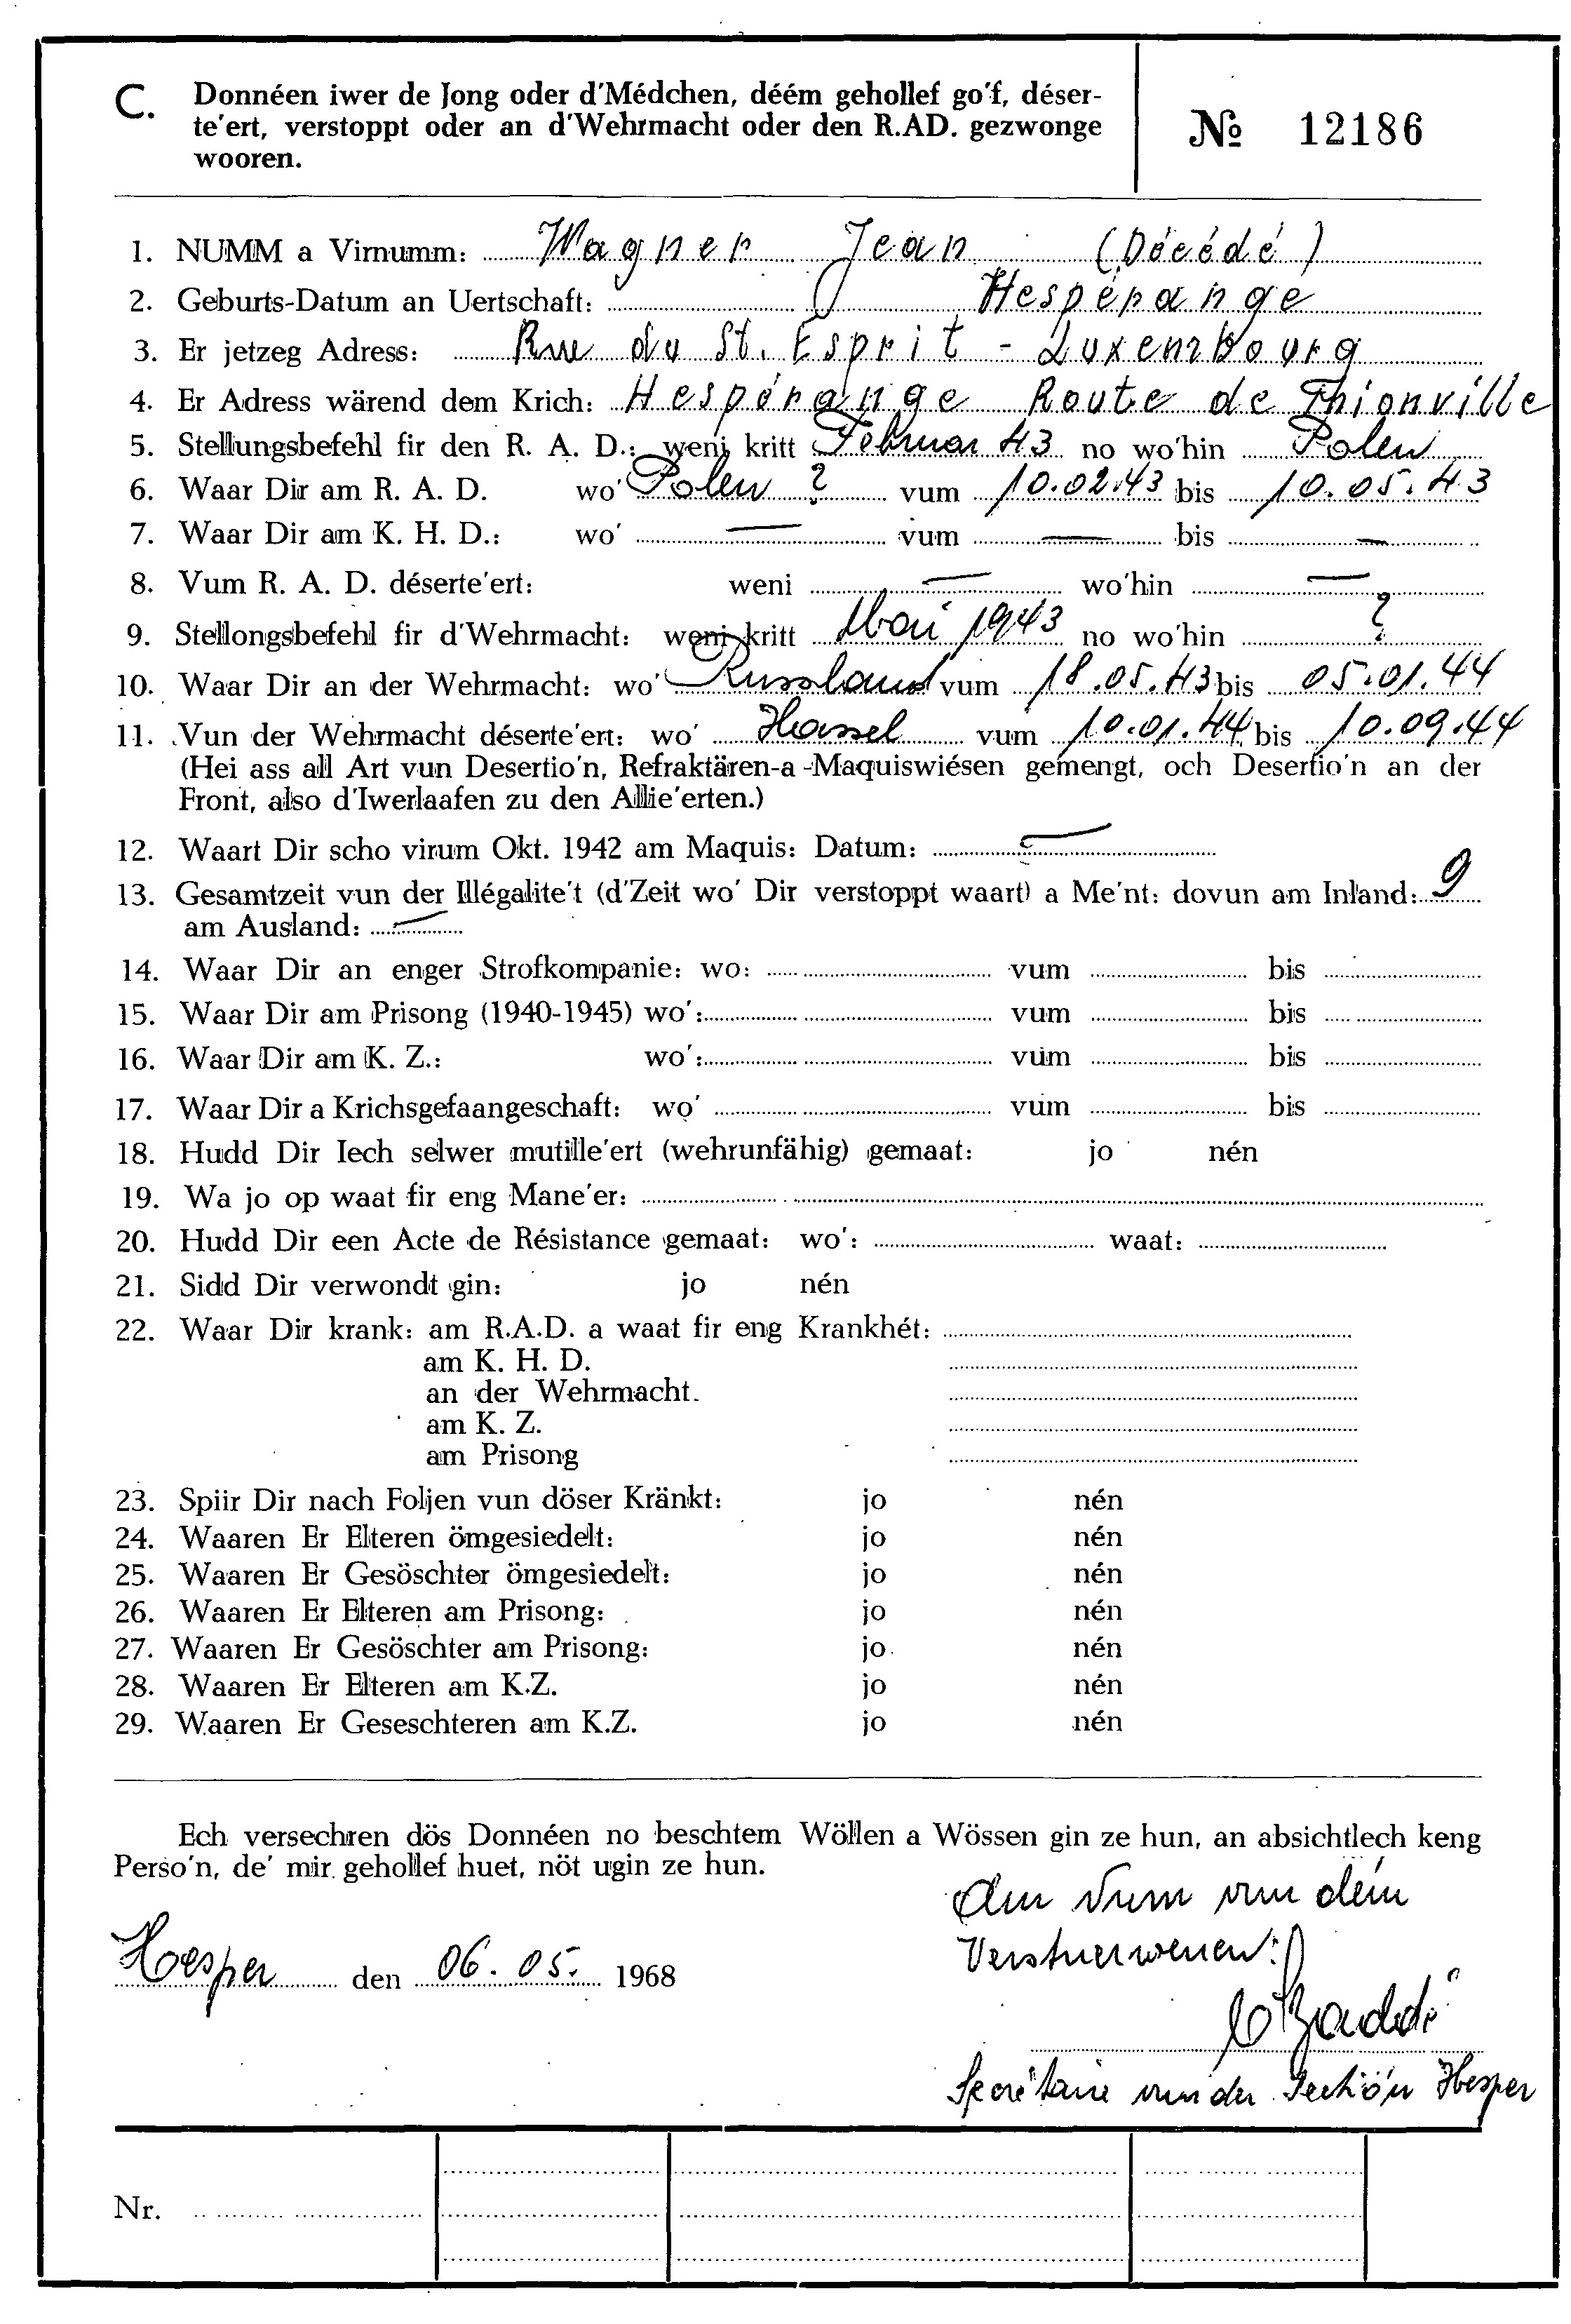 C. Donnéen iwer de Jong oder d'Médchen, déém gehollef go'f, déser-
te'ert, verstoppt oder an d'Wehrmacht oder den R.AD. gezwonge
wooren.
№ 12186
1. NUMM a Virnumm: Wagner Jean (Décédé)
2. Geburts-Datum an Uertschaft: Hespérange
3. Er jetzeg Adress: Rue du St. Esprit - Luxembourg
4. Er Adress wärend dem Krich: Hespérange Route de Thionville
5. Stellungsbefehl fir den R. A. D.: weni kritt Februar 43 no wo'hin Polen
6. Waar Dir am R. A. D. wo' Polen ? vum 10.02.43 bis 10.05.43
7. Waar Dir am K. H. D.: wo' — vum — bis —
8. Vum R. A. D. déserte'ert: weni — wo'hin —
9. Stellongsbefehl fir d'Wehrmacht: weni kritt Mai 1943 no wo'hin ?
10. Waar Dir an der Wehrmacht: wo' Russland vum 18.05.43 bis 05.01.44
11. Vun der Wehrmacht déserte'ert: wo' Hassel vum 10.01.44 bis 10.09.44
(Hei ass all Art vun Desertio'n, Refraktären-a-Maquiswiésen gemengt, och Desertio'n an der
Front, also d'Iwerlaafen zu den Allie'erten.)
12. Waart Dir scho virum Okt. 1942 am Maquis: Datum: —
13. Gesamtzeit vun der Illégalite't (d'Zeit wo' Dir verstoppt waart) a Me'nt: dovun am Inland: 9
am Ausland: —
14. Waar Dir an enger Strofkompanie: wo: vum bis
15. Waar Dir am Prisong (1940-1945) wo': vum bis
16. Waar Dir am K. Z.: wo': vum bis
17. Waar Dir a Krichsgefaangeschaft: wo' vum bis
18. Hudd Dir Iech selwer mutille'ert (wehrunfähig) gemaat: jo nén
19. Wa jo op waat fir eng Mane'er:
20. Hudd Dir een Acte de Résistance gemaat: wo': waat:
21. Sidd Dir verwondt gin: jo nén
22. Waar Dir krank: am R.A.D. a waat fir eng Krankhét:
am K. H. D.
an der Wehrmacht.
am K. Z.
am Prisong
23. Spiir Dir nach Foljen vun döser Kränkt: jo nén
24. Waaren Er Elteren ömgesiedelt: jo nén
25. Waaren Er Gesöschter ömgesiedelt: jo nén
26. Waaren Er Elteren am Prisong: jo nén
27. Waaren Er Gesöschter am Prisong: jo nén
28. Waaren Er Elteren am K.Z. jo nén
29. Waaren Er Geseschteren am K.Z. jo nén
Ech versechren dös Donnéen no beschtem Wöllen a Wössen gin ze hun, an absichtlech keng
Perso'n, de' mir gehollef huet, nöt ugin ze hun.
Am Num vun dém
Verstuerwenen:
Hesper den 06.05. 1968
Secrétaire vun der Sectio'n Hesper
Nr.